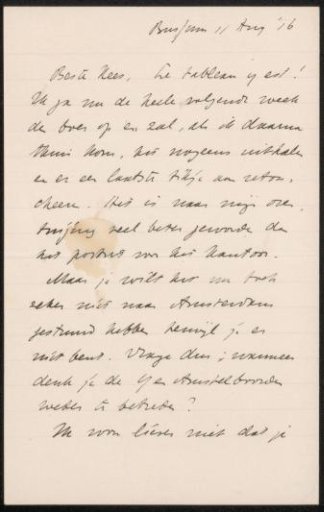 Bussum 11 Aug '16
Beste Kees, Le tableau y est!
Ik ga nu de heele volgende week
de boer op en zal, als ik daarna
thuis kom, het nogeens uithalen
en er een laatste tikje aan retou-
cheeren. Het is naar mijn over-
tuiging veel beter geworden dan
het portret voor het kantoor.
Maar je wilt het nu toch
zeker niet naar Amsterdam
gestuurd hebben terwijl je er
niet bent. Vraag dus; wanneer
denk je de Y en Amstelboorden
weder te betreden?
Ik voor liever niet dat je